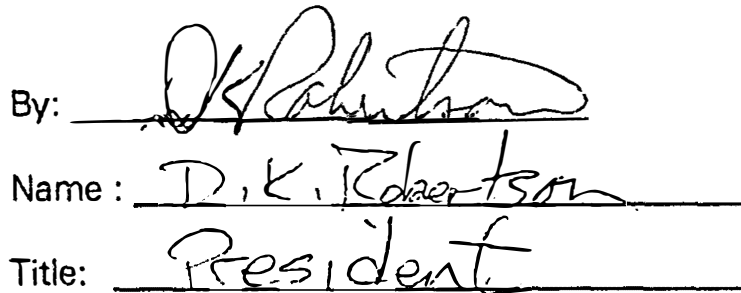 By: DK Robertson
Name : D. K. Robertson
Title: President